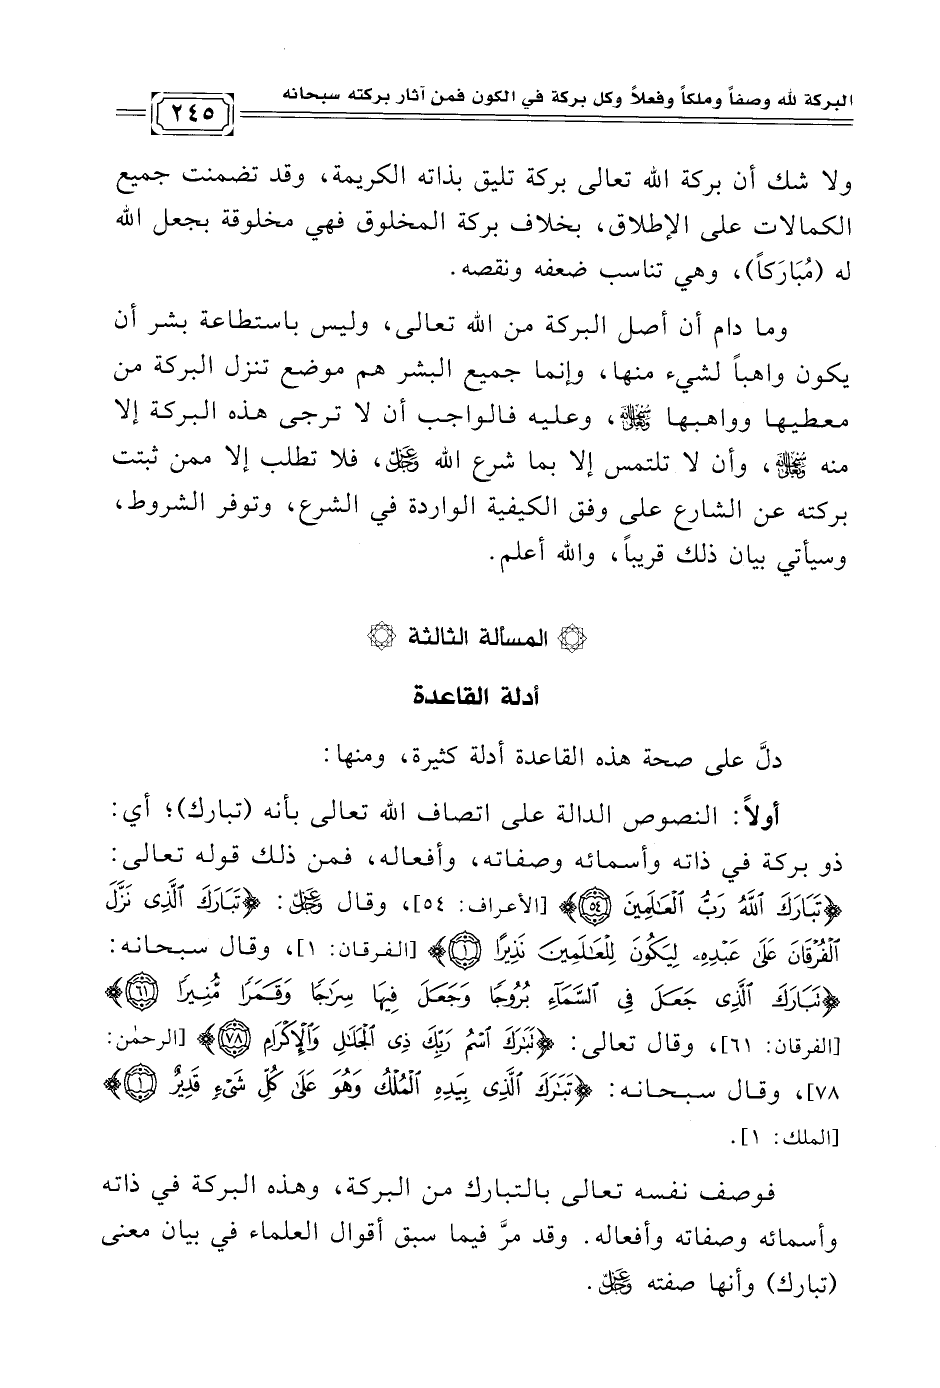 البركة لله وصفاً وملكاً وفعلاً وكل بركة في الكون فمن آثار بركته سبحانه
٢٤٥
ولا شك أن بركة الله تعالى بركة تليق بذاته الكريمة، وقد تضمنت جميع
الكمالات على الإطلاق، بخلاف بركة المخلوق فهي مخلوقة بجعل الله
له (مُبَارَكاً)، وهي تناسب ضعفه ونقصه.
وما دام أن أصل البركة من الله تعالى، وليس باستطاعة بشر أن
يكون واهباً لشيء منها، وإنما جميع البشر هم موضع تنزل البركة من
معطيها وواهبها ﷾، وعليه فالواجب أن لا ترجى هذه البركة إلا
منه ﷾، وأن لا تلتمس إلا بما شرع الله ﷿، فلا تطلب إلا ممن ثبتت
بركته عن الشارع على وفق الكيفية الواردة في الشرع، وتوفر الشروط،
وسيأتي بيان ذلك قريباً، والله أعلم.
المسألة الثالثة
أدلة القاعدة
دلَّ على صحة هذه القاعدة أدلة كثيرة، ومنها:
أولاً: النصوص الدالة على اتصاف الله تعالى بأنه (تبارك)؛ أي:
ذو بركة في ذاته وأسمائه وصفاته، وأفعاله، فمن ذلك قوله تعالى:
﴿تَبَارَكَ ٱللَّهُ رَبُّ ٱلْعَـٰلَمِينَ ٥٤﴾ [الأعراف: ٥٤]، وقال ﷿: ﴿تَبَارَكَ ٱلَّذِى نَزَّلَ
ٱلْفُرْقَانَ عَلَىٰ عَبْدِهِۦ لِيَكُونَ لِلْعَـٰلَمِينَ نَذِيرًا ١﴾ [الفرقان: ١]، وقال سبحانه:
﴿تَبَارَكَ ٱلَّذِى جَعَلَ فِى ٱلسَّمَآءِ بُرُوجًا وَجَعَلَ فِيهَا سِرَٰجًا وَقَمَرًا مُّنِيرًا ٦١﴾
[الفرقان: ٦١]، وقال تعالى: ﴿تَبَـٰرَكَ ٱسْمُ رَبِّكَ ذِى ٱلْجَلَـٰلِ وَٱلْإِكْرَامِ ٧٨﴾ [الرحمٰن:
٧٨]، وقال سبحانه: ﴿تَبَـٰرَكَ ٱلَّذِى بِيَدِهِ ٱلْمُلْكُ وَهُوَ عَلَىٰ كُلِّ شَىْءٍ قَدِيرٌ ١﴾
[الملك: ١].
فوصف نفسه تعالى بالتبارك من البركة، وهذه البركة في ذاته
وأسمائه وصفاته وأفعاله. وقد مرَّ فيما سبق أقوال العلماء في بيان معنى
(تبارك) وأنها صفته ﷿.